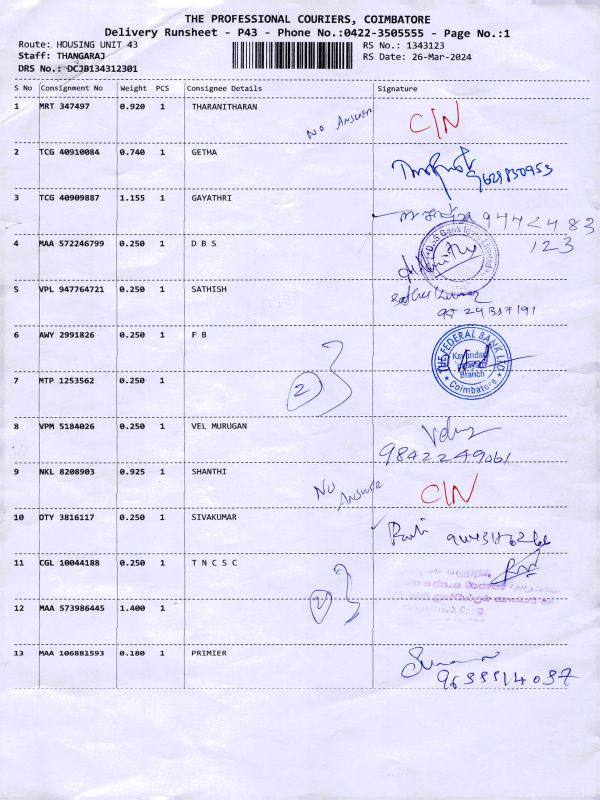 THE PROFESSIONAL COURIERS, COIMBATORE
Delivery Runsheet - P43 - Phone No.:0422-3505555 - Page No.:1
Route: HOUSING UNIT 43 RS No.: 1343123
Staff: THANGARAJ RS Date: 26-Mar-2024
DRS No.: DCJB134312301
S No Consignment No Weight PCS Consignee Details Signature
1 MRT 347497 0.920 1 THARANITHARAN NO ANSWER C/N
2 TCG 40910084 0.740 1 GETHA 9629830953
3 TCG 40909887 1.155 1 GAYATHRI 9442483
123
4 MAA 572246799 0.250 1 D B S
5 VPL 947764721 0.250 1 SATHISH
6 AWY 2991826 0.250 1 F B THE FEDERAL BANK LTD
Branch
Coimbatore
7 MTP 1253562 0.250 1 2
8 VPM 5184026 0.250 1 VEL MURUGAN
9842249061
9 NKL 8208903 0.925 1 SHANTHI NO ANSWER C/N
10 OTY 3816117 0.250 1 SIVAKUMAR
11 CGL 10044188 0.250 1 T N C S C
12 MAA 573986445 1.400 1 2
13 MAA 106881593 0.180 1 PRIMIER